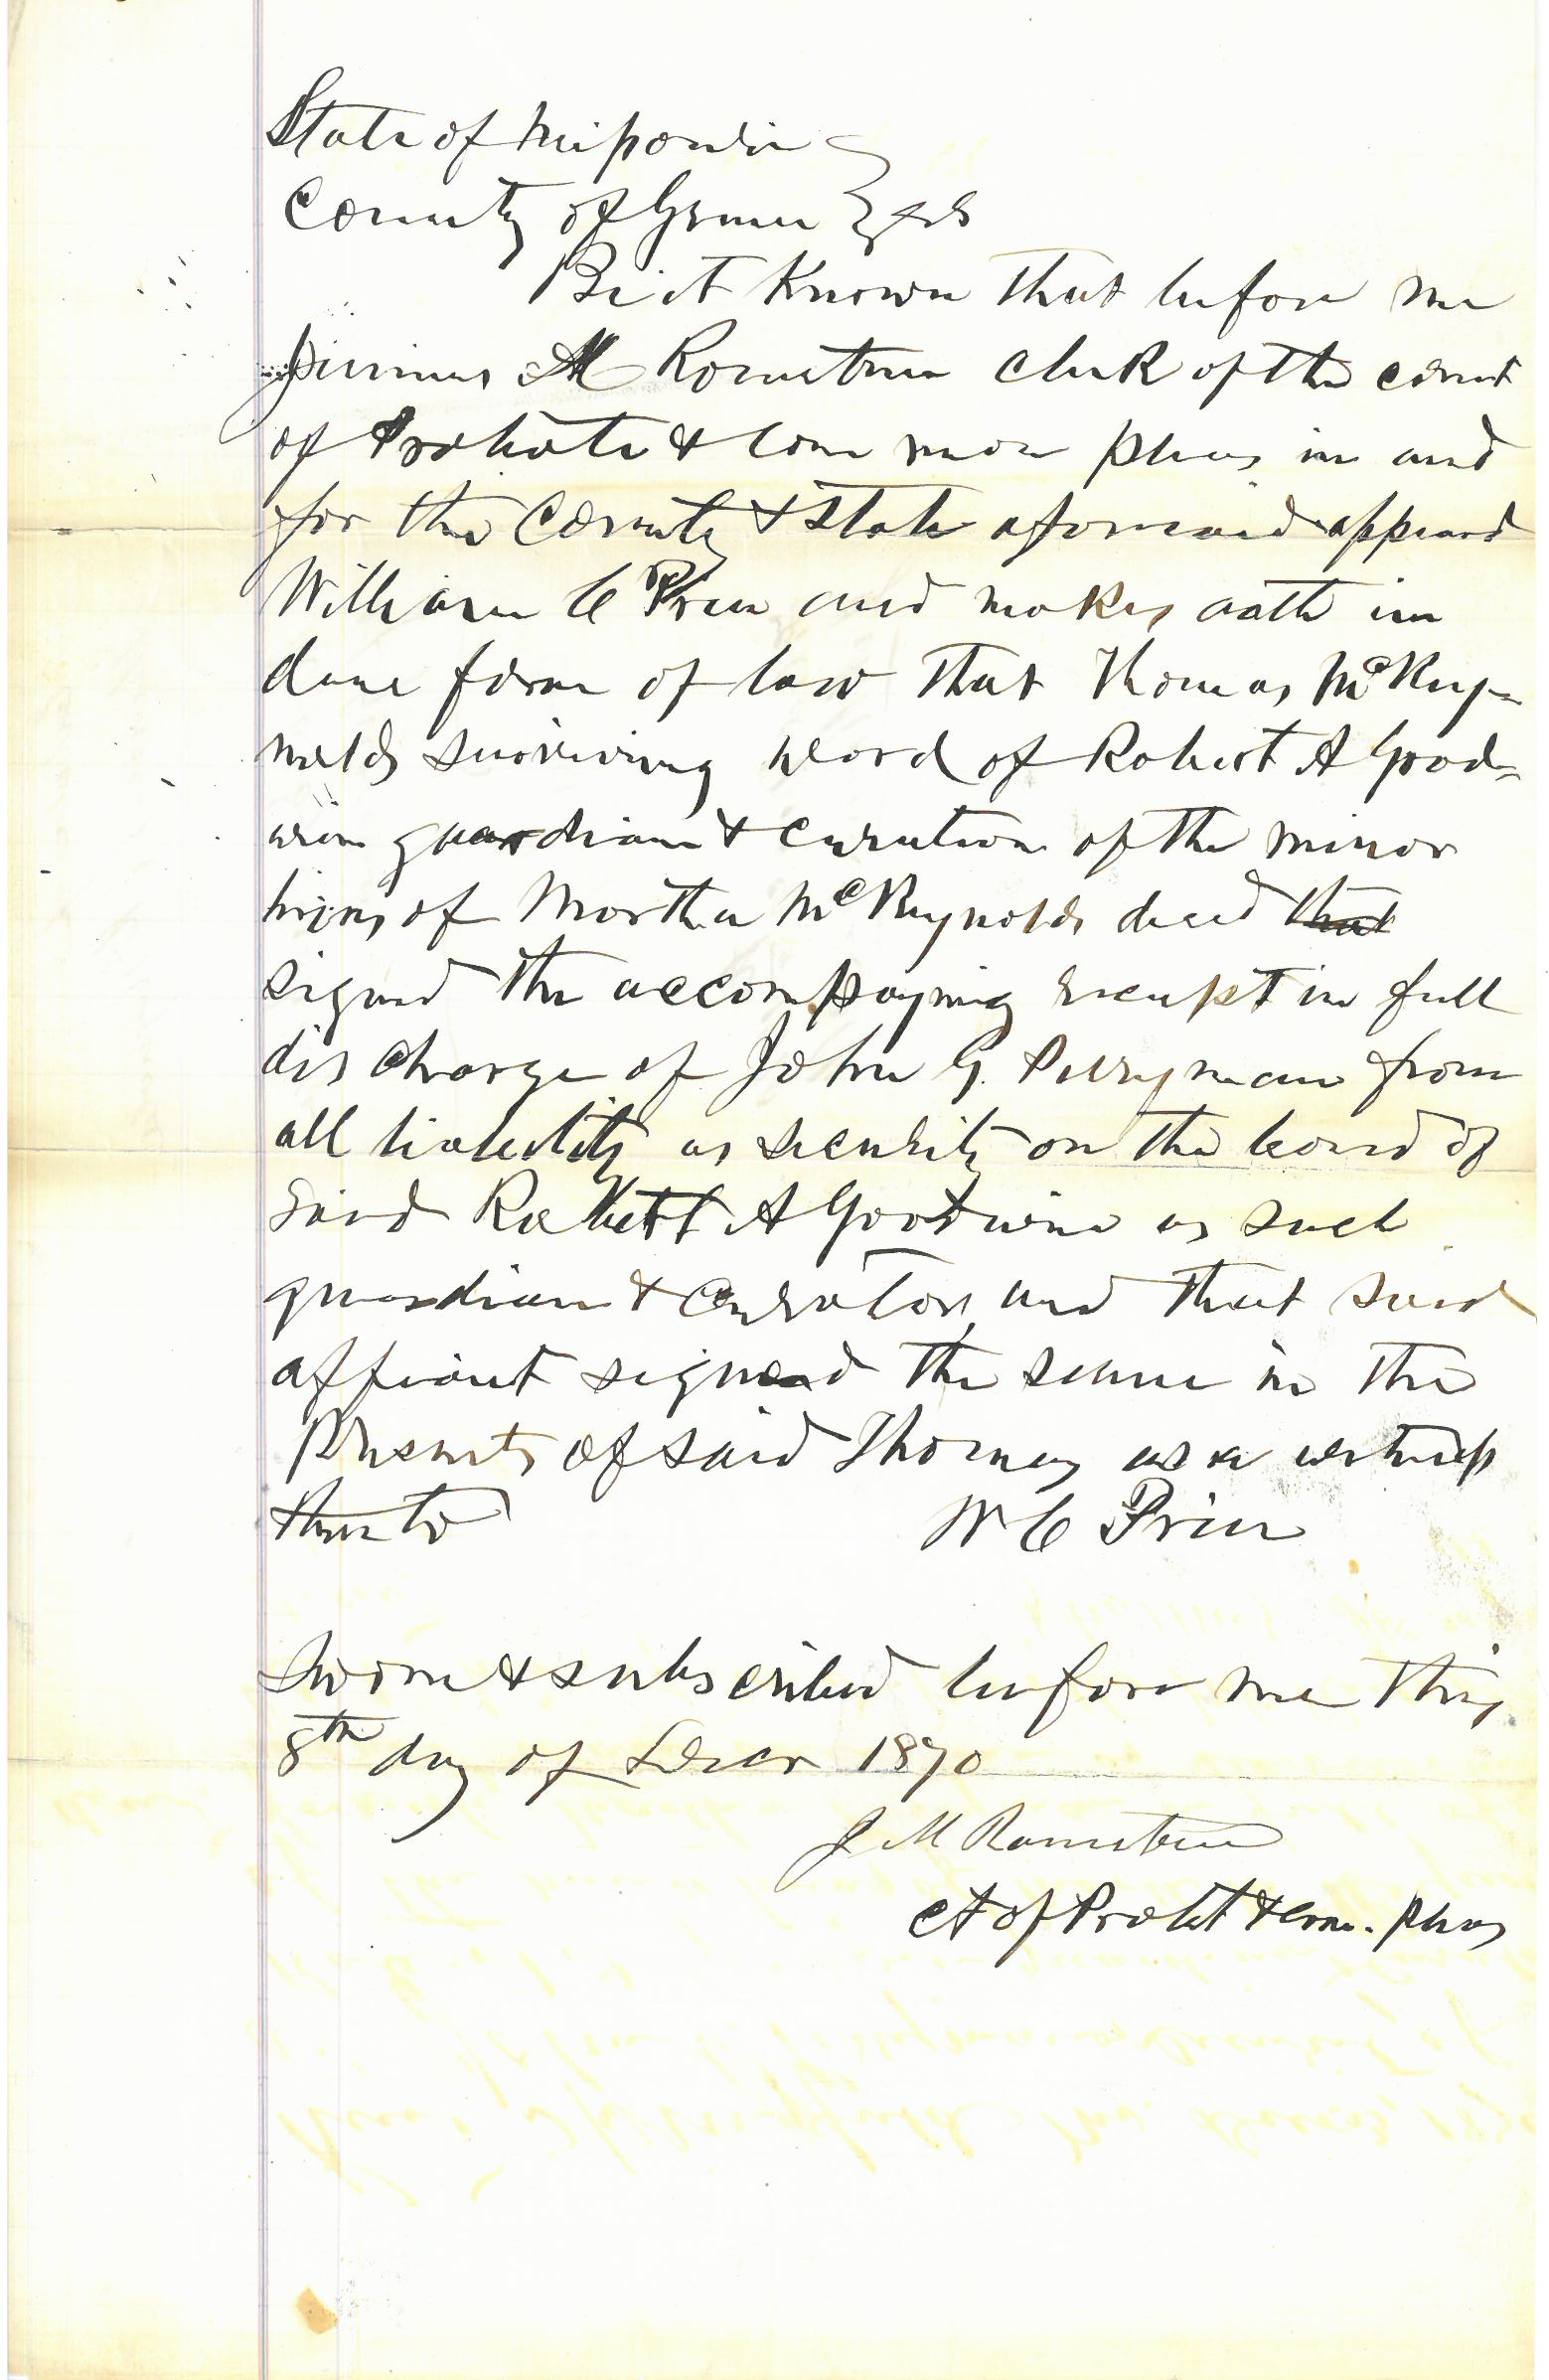 State of Missouri
County of Greene } ss
Be it Known that before me
M Rountree clerk of the court
of Probate & Common pleas in and
for the County & State aforesaid appeared
William C Price and makes oath in
due form of law that Thomas McRey-
nolds surviving ward of Robert A Good-
win guardian & curator of the minor
heirs of Martha McReynolds decd that
signed the accompanying receipt in full
discharge of John G. Perryman from
all liability as security on the bond of
said Robert A Goodwin as such
guardian & curator, and that said
affiant signed the same in the
presents of said Thomas as a witness
thereto W C Price
Sworn & subscribed before me this
8th day of Decr 1870
J M Rountree
of Probt & Com. pleas